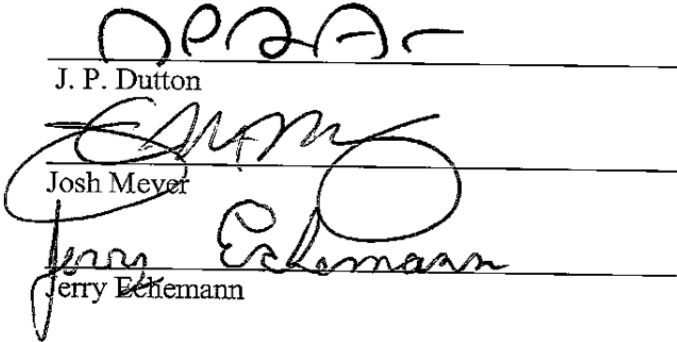 J. P. Dutton
Josh Meyer
Jerry Echemann
Jerry Echemann